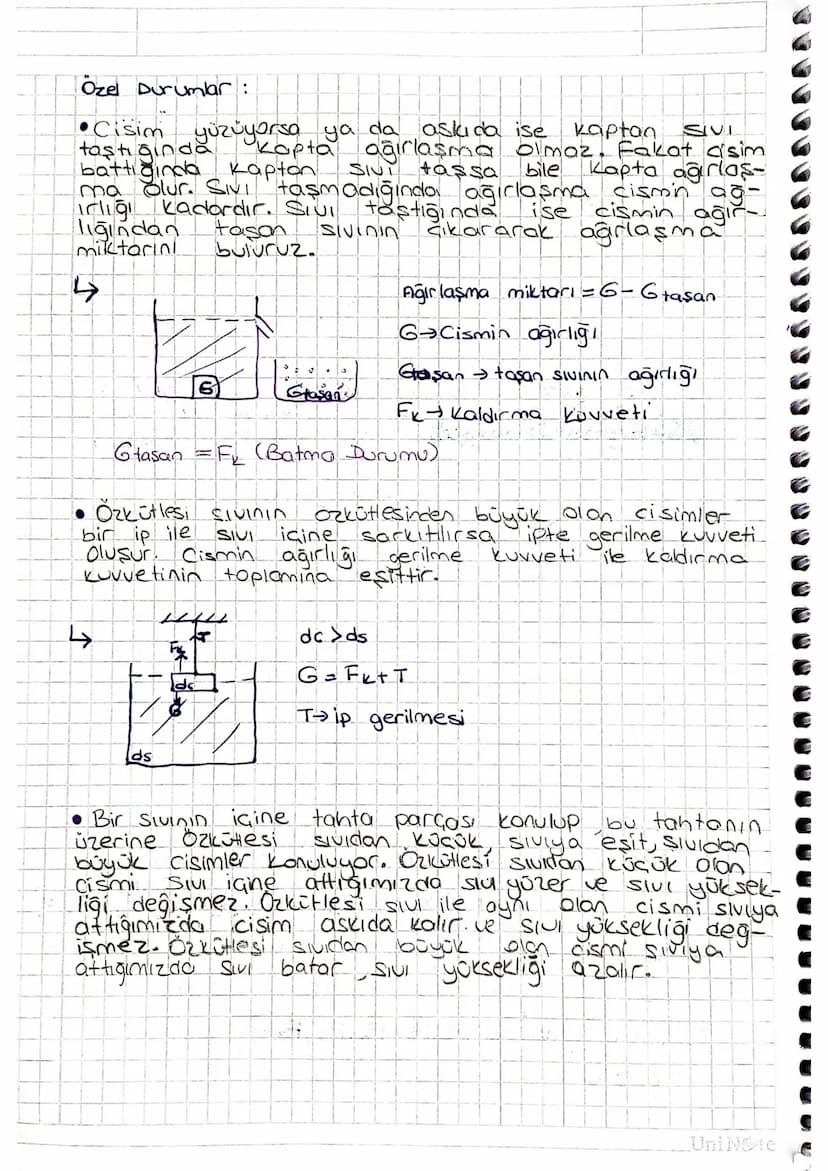 Özel Durumlar :
• Cisim yüzüyorsa ya da askıda ise kaptan sıvı
taştığında kapta ağırlaşma olmaz. Fakat cisim
battığında kaptan sıvı taşsa bile kapta ağırlaş-
ma olur. Sıvı taşmadığında ağırlaşma cismin ağ-
ırlığı kadardır. Sıvı taştığında ise cismin ağır-
lığından taşan sıvının çıkararak ağrlaşma
miktarını buluruz.
↳
Ağırlaşma miktarı = G - Gtaşan
G → Cismin ağırlığı
Gtaşan → taşan sıvının ağırlığı
Fk → Kaldırma kuvveti
G
Gtaşan
Gtaşan = Fk (Batma Durumu)
• Özkütlesi sıvının özkütlesinden büyük olan cisimler
bir ip ile sıvı içine sarkıtılırsa ipte gerilme kuvveti
oluşur. Cismin ağırlığı gerilme kuvveti ile kaldırma
kuvvetinin toplamına eşittir.
↳
Fk T
dc
G
ds
dc > ds
G = Fk + T
T → ip gerilmesi
• Bir sıvının içine tahta parçası konulup bu tahtanın
üzerine özkütlesi sıvıdan küçük, sıvıya eşit, sıvıdan
büyük cisimler konuluyor. Özkütlesi sıvıdan küçük olan
cismi sıvı içine attığımızda sıvı yüzer ve sıvı yüksek-
liği değişmez. Özkütlesi sıvı ile aynı olan cismi sıvıya
attığımızda cisim askıda kalır ve sıvı yüksekliği değ-
işmez. Özkütlesi sıvıdan büyük olan cismi sıvıya
attığımızda sıvı batar, sıvı yüksekliği azalır.
UniNote